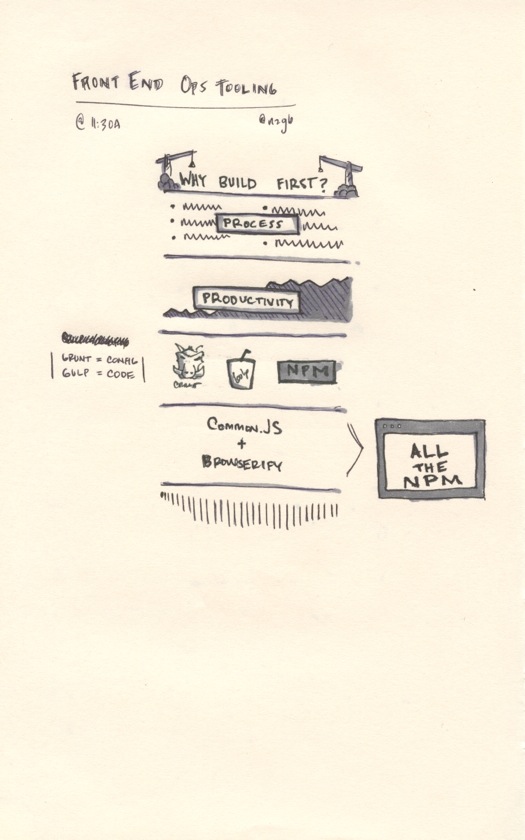 FRONT END OPS TOOLING
@ 11:30A @nzgb
WHY BUILD FIRST?
PROCESS
PRODUCTIVITY
GRUNT = CONFIG
GULP = CODE
GRUNT
NPM
COMMON.JS
+
BROWSERIFY
ALL
THE
NPM